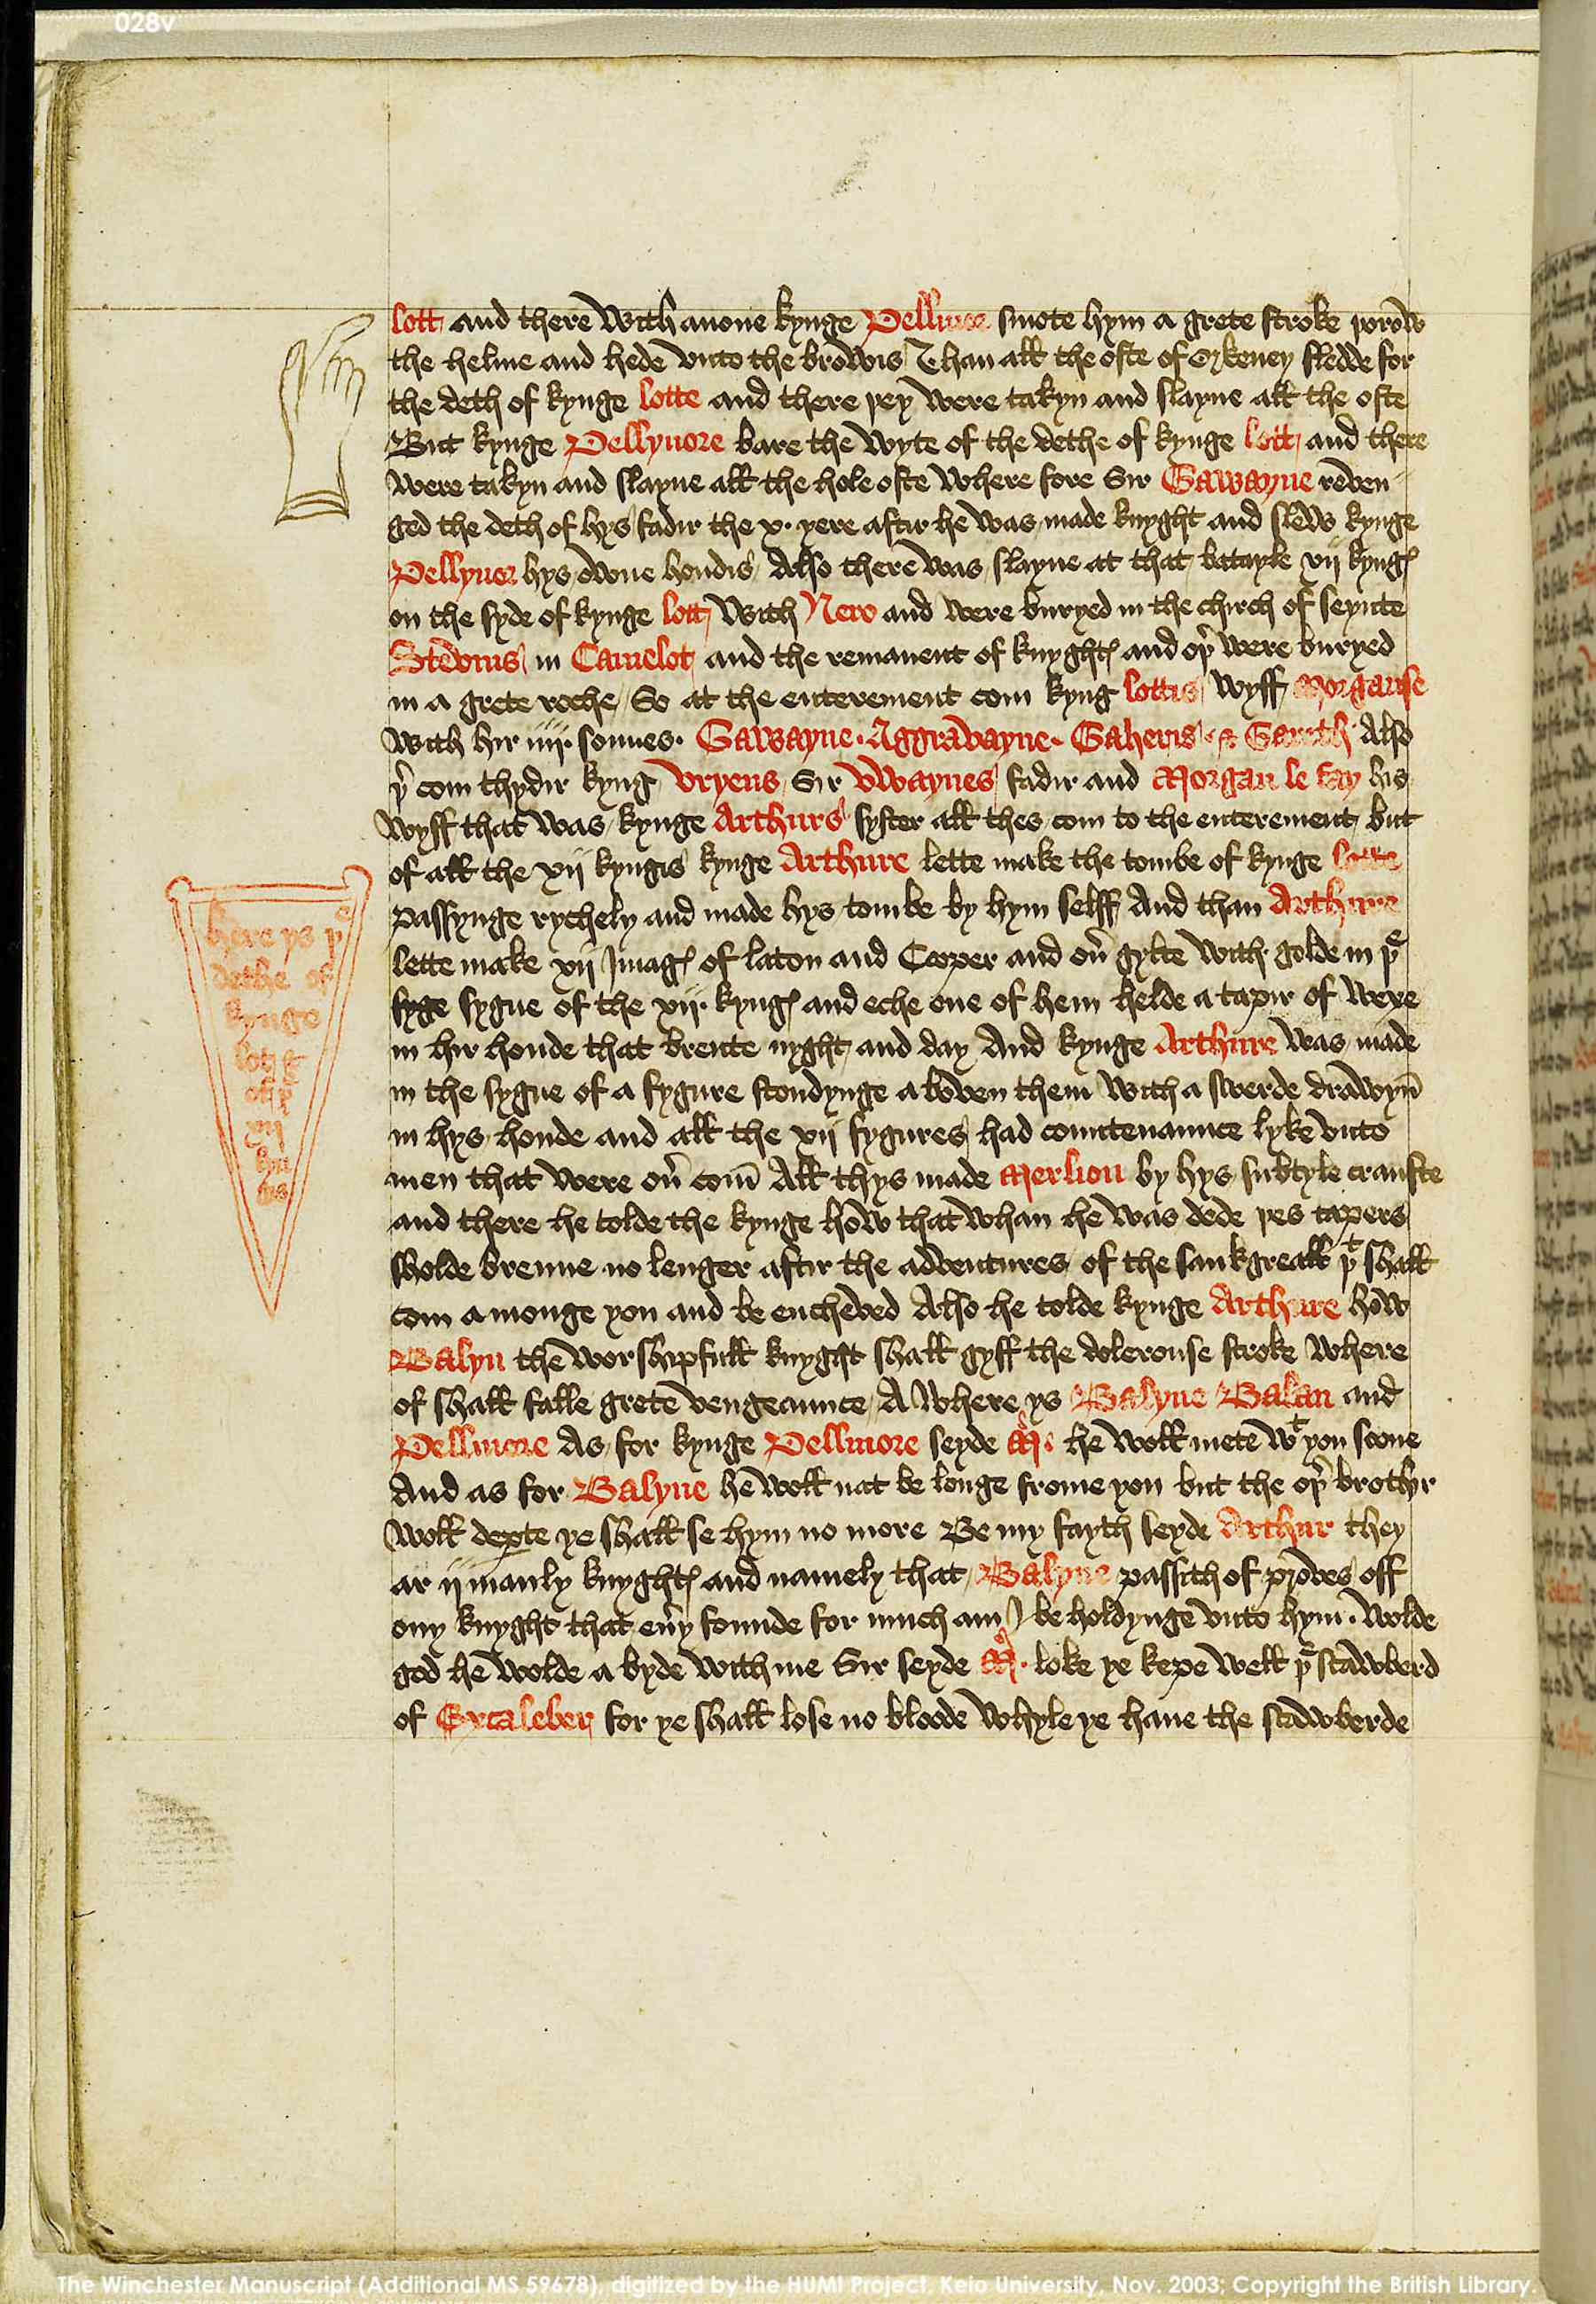 028v
lott and there with anone kynge Pellinore smote hym a grete stroke þorow
the helme and hede vnto the browis Than all the oste of Orkeney fledde for
the deth of kynge lotte and there þey were takyn and slayne all the oste
But kynge Pellynore bare the wyte of the dethe of kynge lott and there
were takyn and slayne all the hole oste where fore Sir Gawayne reven
ged the deth of hys fadir the x. yere aftir he was made knyght and slew kynge
Pellynor hys owne hondis Also there was slayne at that batayle xij kyngꝭ
on the syde of kynge lott with Nero and were buryed in the chirch of seynte
Stevins in Camelot and the remanent of knyghtꝭ and oþ̉ were buryed
in a grete roche So at the enterement com kyng lottis wyff Morgause
with hir iiij. sonnes. Gawayne. Aggravayne. Gaheris. & Gareth Also
þ̉ com thydir kyng Vryens Sir Vwaynes fadir and Morgan le fay his
wyff that was kynge Arthurs syster all thes com to the enterement but
of all the xij kyngis kynge Arthure lette make the tombe of kynge lotte
passynge rychely and made hys tombe by hym selff And than Arthure
lette make xij Imagꝭ of laton and Cooper and oủ gylte with golde in þe
fyge sygne of the xij. kyngꝭ and eche one of hem helde a tapir of wexe
in hir honde that brente nyght and day And kynge Arthure was made
in the sygne of a fygure stondynge a boven them with a swerde drawyn̄
in hys honde and all the xij fygures had countenaunce lyke vnto
men that were oủ com̄ All thys made Merlion by hys subtyle craufte
and there he tolde the kynge how that whan he was dede þes tapers
sholde brenne no lenger aftir the adventures of the sankgreall þt shall
com a monge you and be encheved Also he tolde kynge Arthure how
Balyn the worshipfull knyght shall gyff the dolerouse stroke where
of shall falle grete vengeaunce A where ys Balyne Balan and
Pellinore As for kynge Pellinore seyde M. he woll mete wt you soone
And as for Balyne he woll nat be longe frome you but the oþ̉ brothir
woll deꝑte ye shall se hym no more Be my fayth seyde Arthur they
ar ij manly knyghtꝭ and namely that Balyne passith of ꝓwes off
ony knyght that eủ y founde for much am I be holdynge vnto hym. wolde
god he wolde a byde with me Sir seyde M. loke ye kepe well þe scawberd
of Excaleber for ye shall lose no bloode whyle ye haue the scawberde
here ys þe
dethe of
kynge
lott &
of þe
xij
kyn
gys
The Winchester Manuscript (Additional MS 59678), digitized by the HUMI Project, Keio University, Nov. 2003; Copyright the British Library.